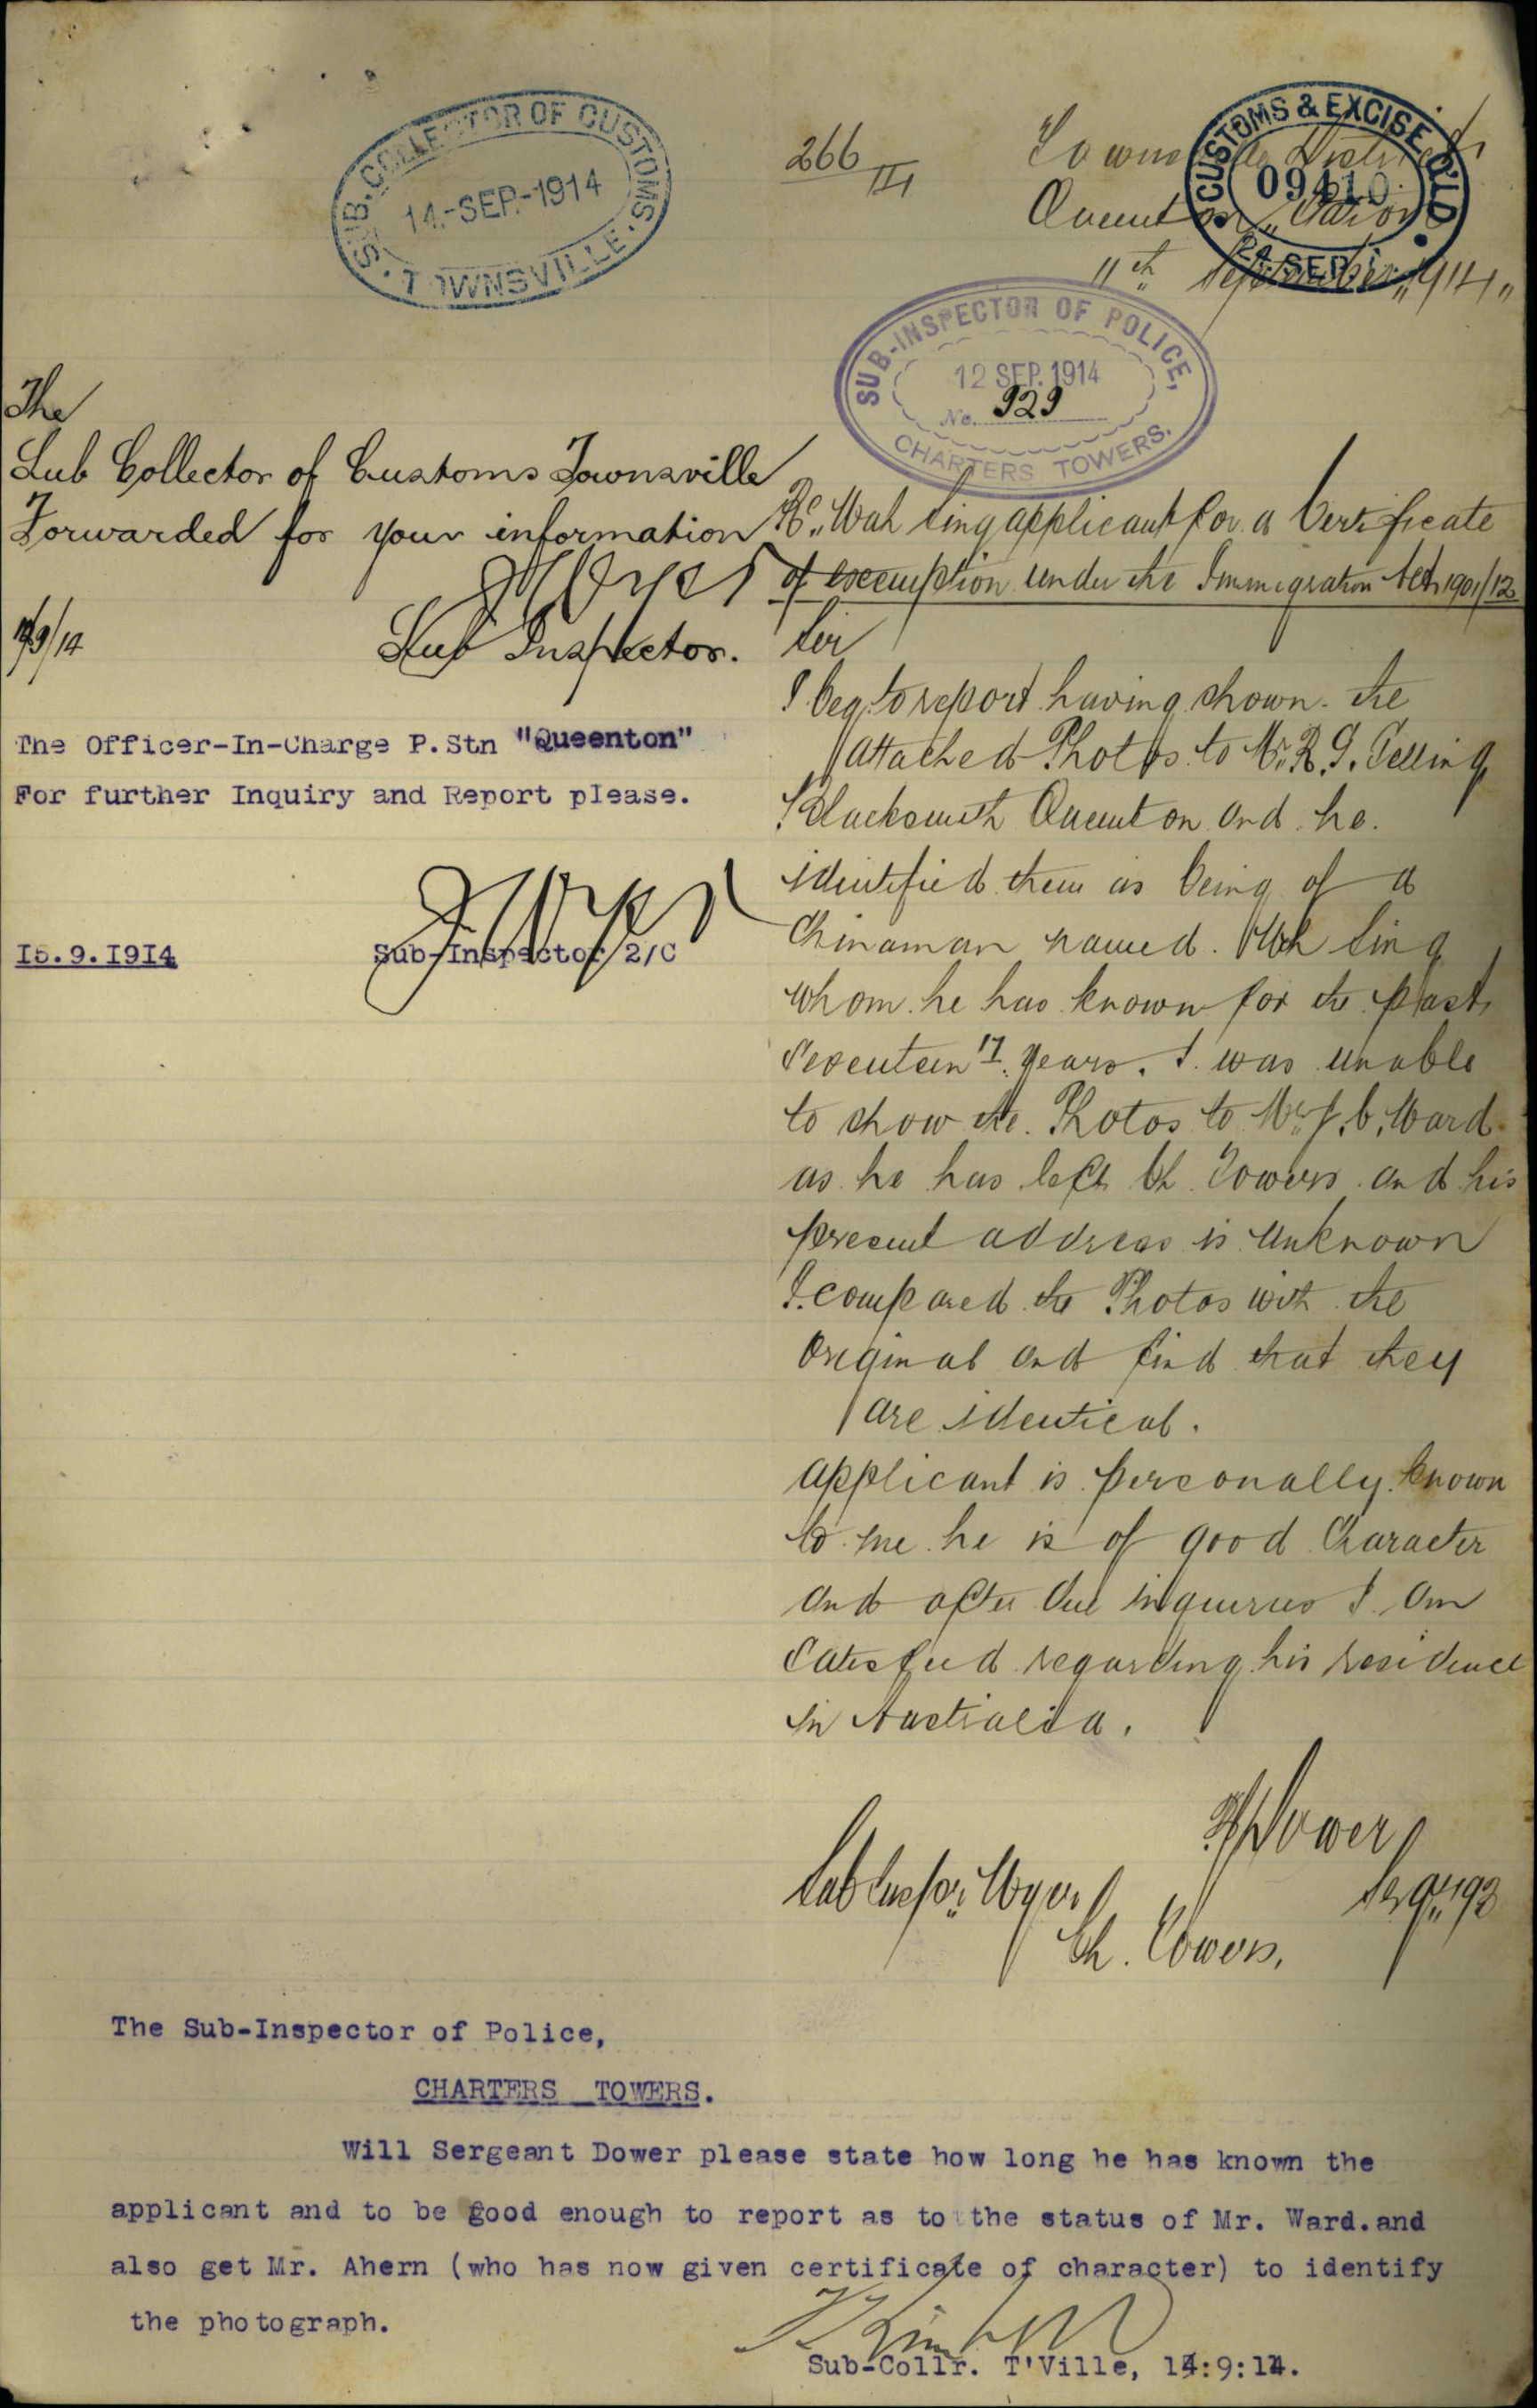 SUB-COLLECTOR OF CUSTOMS
14-SEP-1914
TOWNSVILLE
266
III
Townsville District
CUSTOMS & EXCISE Q'LD
09410
24 SEP
Queenton Station
11th September 1914
SUB-INSPECTOR OF POLICE,
12 SEP. 1914
No. 929
CHARTERS TOWERS.
The
Sub Collector of Customs Townsville
Forwarded for your information
Sub Inspector.
The Officer-In-Charge P.Stn "Queenton"
For further Inquiry and Report please.
15.9.1914 Sub-Inspector 2/C
Re Wah Sing applicant for a Certificate
of exemption under the Immigration Act 1901/12
Sir
I beg to report having shown the
attached Photos to Mr. R. G. Gelling
Blacksmith Queenton and he
identified them as being of a
Chinaman named Wah Sing
whom he has known for the past
Seventeen 17 years. I was unable
to show the Photos to Mr J. C. Ward
as he has left Ch Towers and his
present address is unknown
I compared the Photos with the
Original and find that they
are identical.
applicant is personally known
to me he is of good Character
and after due inquiries I am
Satisfied regarding his residence
in Australia.
Dower
Sub Inspr. Wyer Sergt 93
Ch. Towers.
The Sub-Inspector of Police,
CHARTERS TOWERS.
Will Sergeant Dower please state how long he has known the
applicant and to be good enough to report as to the status of Mr. Ward.and
also get Mr. Ahern (who has now given certificate of character) to identify
the photograph.
Sub-Collr. T'Ville, 14:9:14.